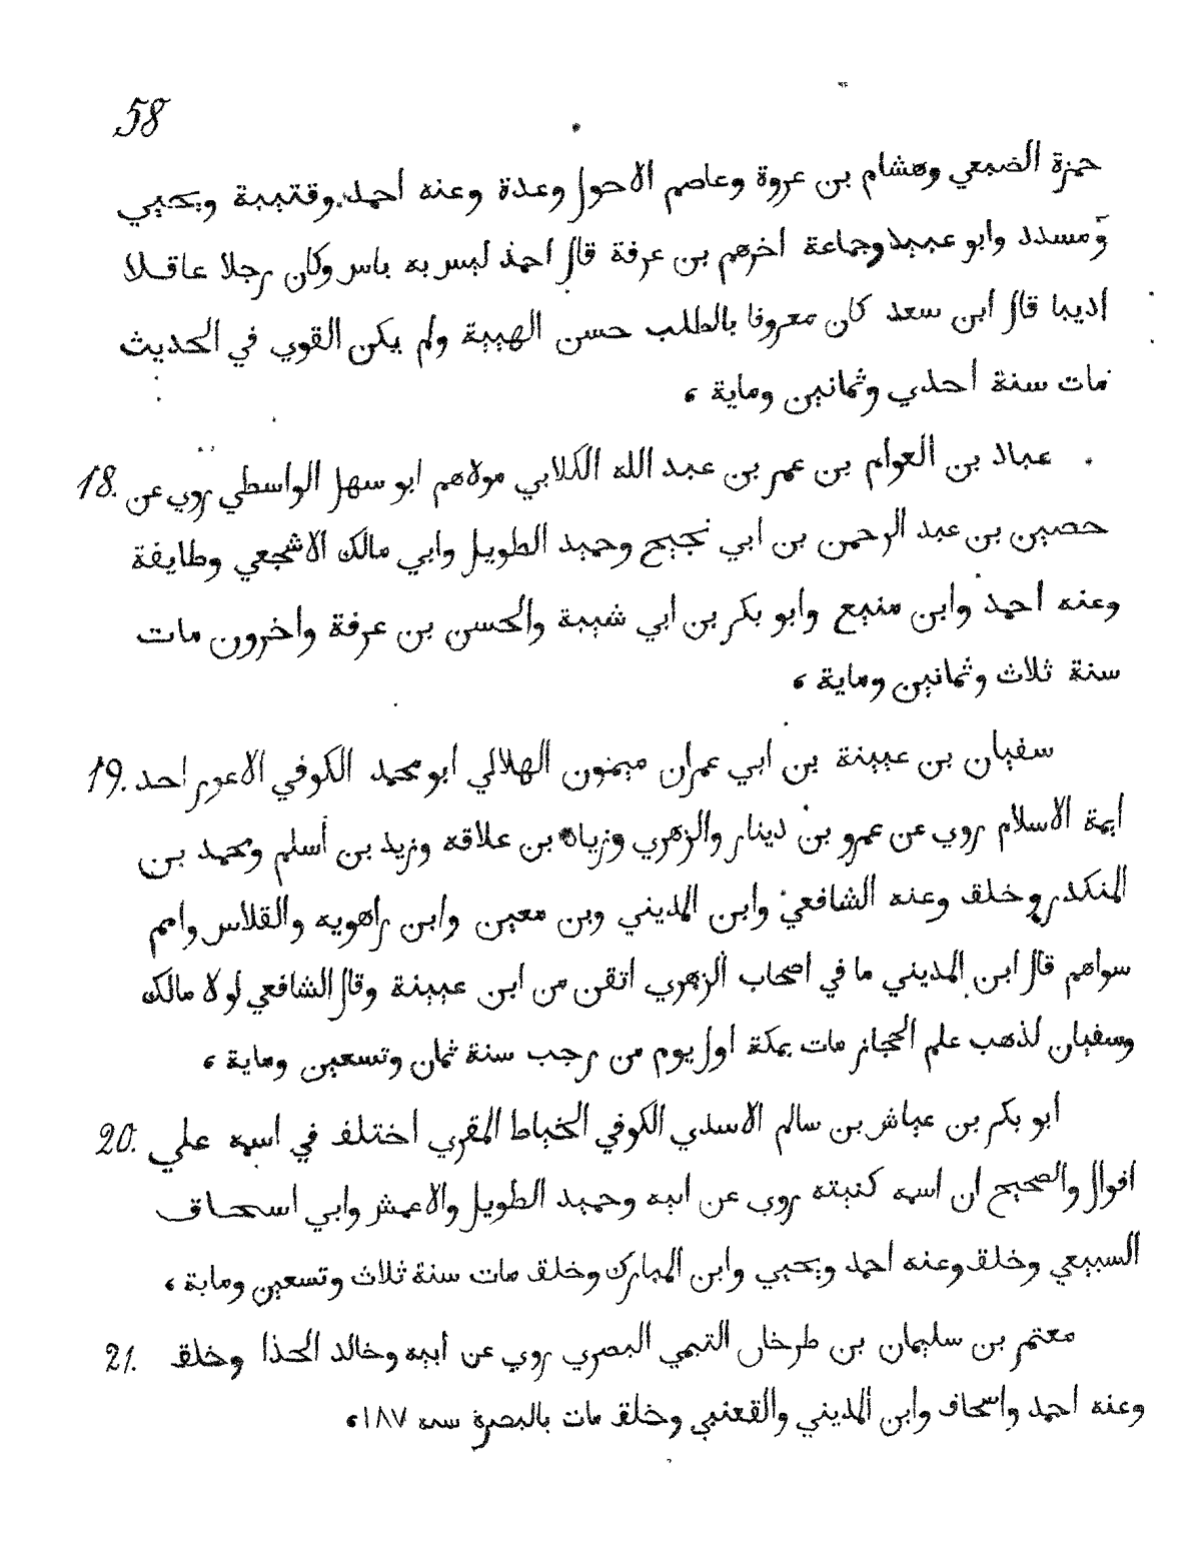 58
حمزة الضبعي وهشام بن عروة وعاصم الاحول وعدة وعنه احمد وقتيبة ويحيي
ومسدد وابو عبيد وجماعة اخرهم بن عرفة قال احمد ليس به باس وكان رجلا عاقلا
اديبا قال ابن سعد كان معروفا بالطلب حسن الهيية ولم يكن القوي في الحديث
مات سنة احدي وثمانين وماية ،
18. عباد بن العوام بن عمر بن عبد الله الكلابي مولاهم ابو سهل الواسطي روي عن
حصين بن عبد الرحمن بن ابي نجيح وحميد الطويل وابي مالك الاشجعي وطايفة
وعنه احمد وابن منيع وابو بكر بن ابي شيبة والحسن بن عرفة واخرون مات
سنة ثلاث وثمانين وماية ،
19. سفيان بن عيينة بن ابي عمران ميمون الهلالي ابو محمد الكوفي الاعور احد
ايمة الاسلام روي عن عمرو بن دينار والزهري وزياد بن علاقه وزيد بن أسلم ومحمد بن
المنكدر وخلق وعنه الشافعي وابن المديني وبن معين وابن راهويه والفلاس وامم
سواهم قال ابن المديني ما في اصحاب الزهري اتقن من ابن عيينة وقال الشافعي لولا مالك
وسفيان لذهب علم الحجاز مات بمكة اول يوم من رجب سنة ثمان وتسعين وماية ،
20. ابو بكر بن عياش بن سالم الاسدي الكوفي الخياط المقري اختلف في اسمه علي
اقوال والصحيح ان اسمه كنيته روي عن ابيه وحميد الطويل والاعمش وابي اسحاق
السبيعي وخلق وعنه احمد ويحيي وابن المبارك وخلق مات سنة ثلاث وتسعين وماية ،
21. معتمر بن سليمان بن طرخان التيمي البصري روي عن أبيه وخالد الحذا وخلق
وعنه احمد واسحاق وابن المديني والقعنبي وخلق مات بالبصرة سنه ١٨٧،